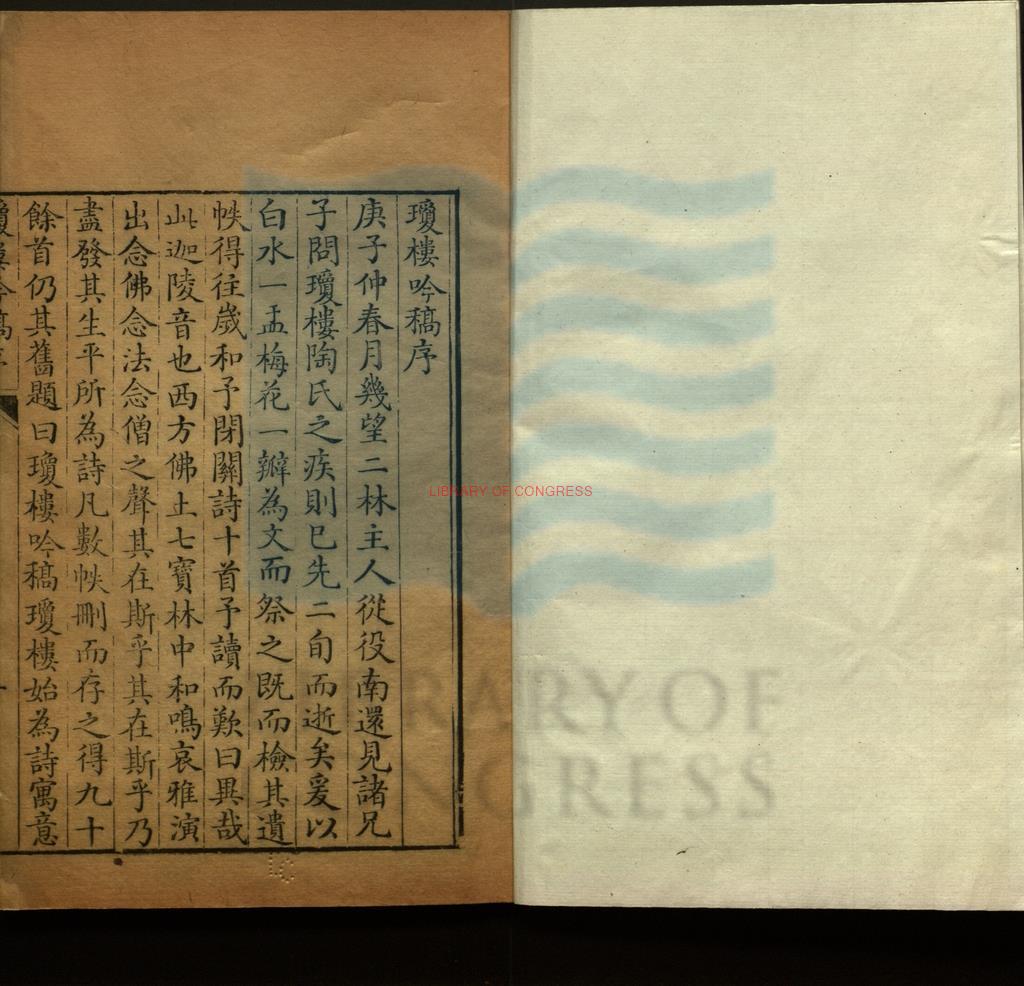 瓊樓吟稿序
庚子仲春月幾望二林主人從役南還見諸兄
子問瓊樓陶氏之疾則已先二旬而逝矣爰以
白水一盂梅花一瓣為文而祭之既而檢其遺
帙得往歲和予閉關詩十首予讀而歎曰異哉
此迦陵音也西方佛土七寶林中和鳴哀雅演
出念佛念法念僧之聲其在斯乎其在斯乎乃
盡發其生平所為詩凡數帙刪而存之得九十
餘首仍其舊題曰瓊樓吟稿瓊樓始為詩寓意
LIBRARY OF CONGRESS
LIBRARY OF
CONGRESS